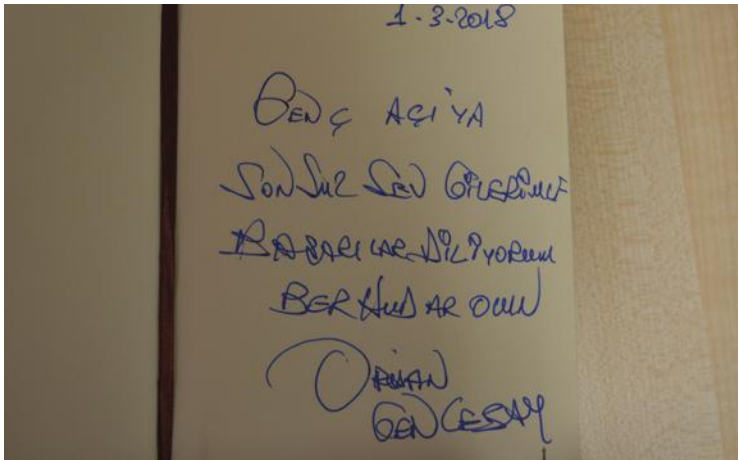 1-3-2018
GENÇ AÇI'YA
SONSUZ SEVGİLERİMLE
BAŞARILAR DİLİYORUM
BERHUDAR OLUN
ORHAN
GENCEBAY